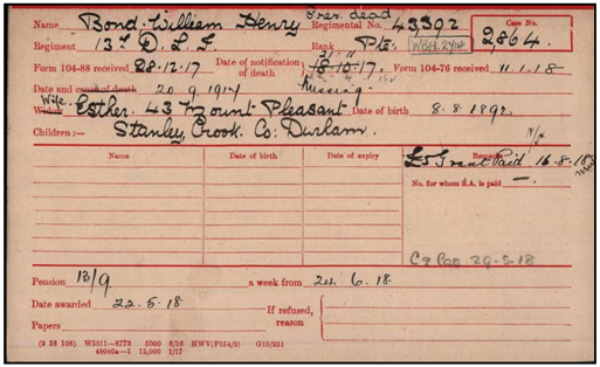 Name Bond. William Henry Pres. dead Regimental No. 43392 Case No.
Regiment 13th D. L. I. Rank Pte: 2,864.
Form 104-88 received 28-12-17 Date of notification of death 18-10-17. Form 104-76 received 11.1.18
21 11
Date and cause of death 20 9 1917 Missing.
Wife Widow Esther. 43 Mount Pleasant Date of birth 8.8.1892
Children:— Stanley, Crook. Co: Durham.
Name Date of birth Date of expiry Remarks
£5 Grant Paid 16-8-18
No. for whom S.A. is paid —.
29-5-18
Pension 13/9 a week from 24.6.18.
Date awarded 22.5.18 If refused, reason
Papers
(9 38 108) W5811—8773 5000 8/16 HWV(P154/2) G15/251
49040a—1 15,000 1/17